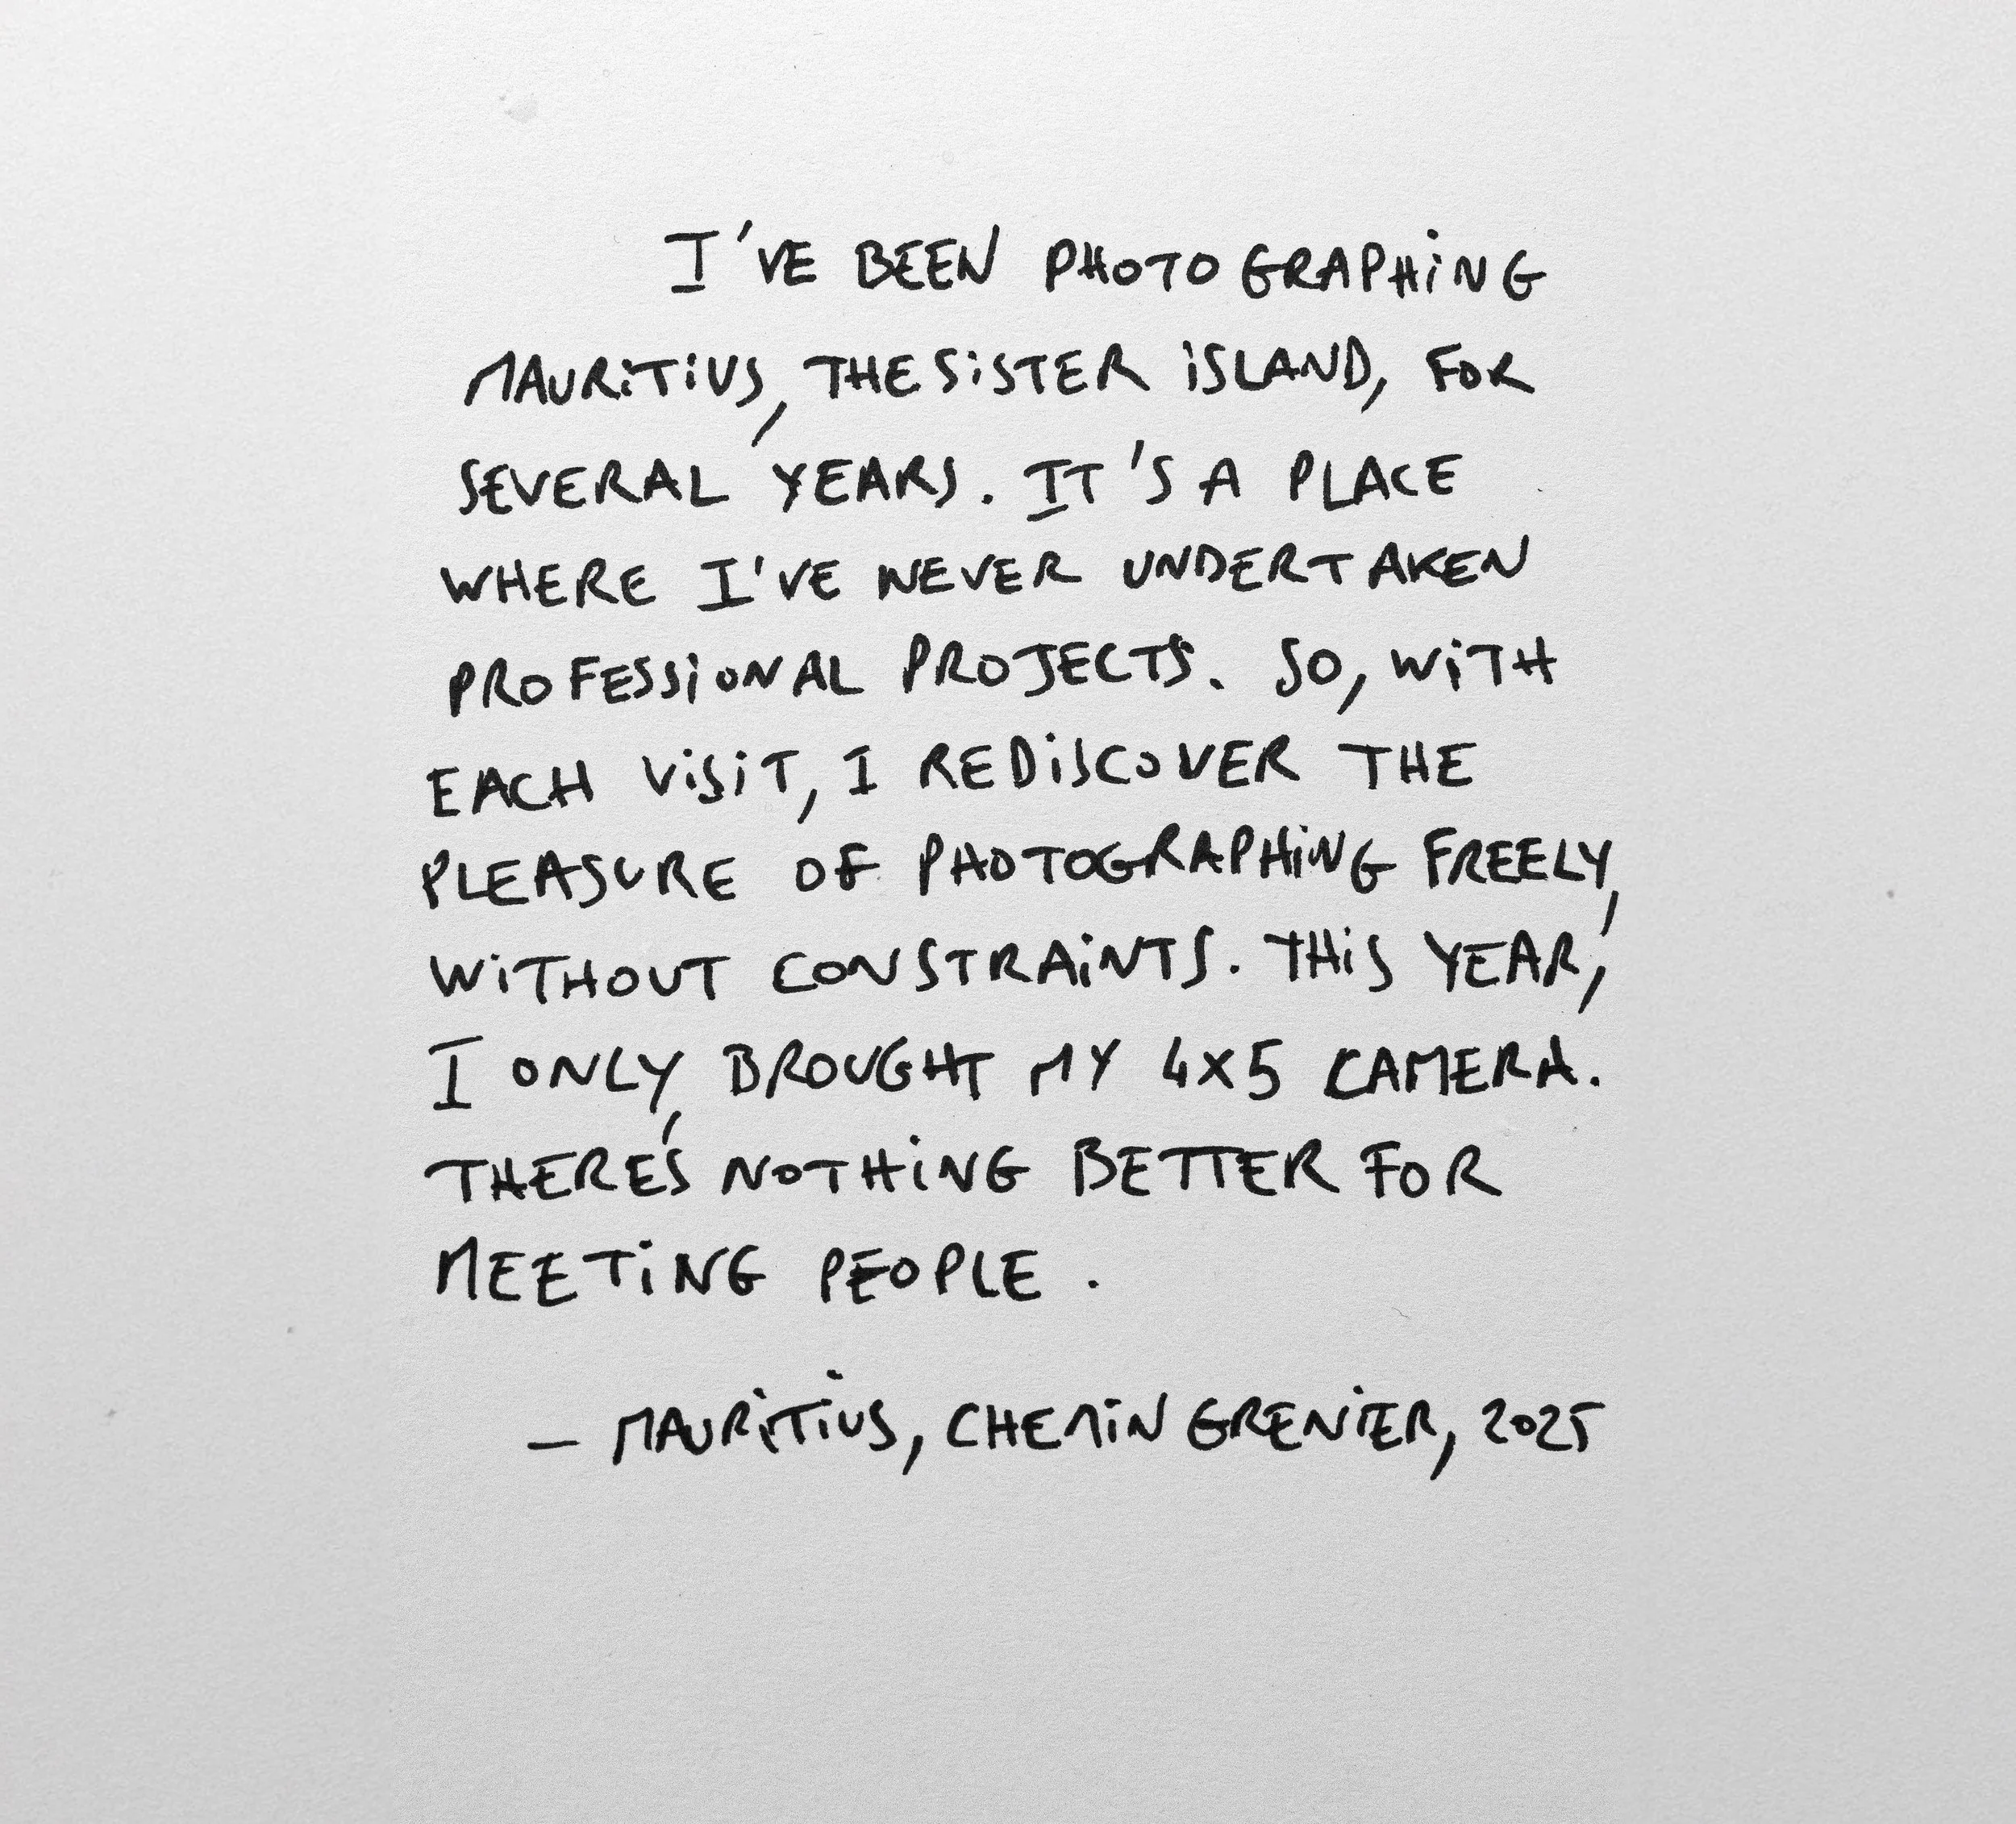 I'VE BEEN PHOTOGRAPHiNG
MAURiTiUS, THE SiSTER iSLAND, FOR
SEVERAL YEARS. IT'S A PLACE
WHERE I'VE NEVER UNDERTAKEN
PROFESSiONAL PROJECTS. SO, WiTH
EACH ViSiT, I REDiSCOVER THE
PLEASURE OF PHOTOGRAPHiNG FREELY,
WiTHOUT CONSTRAiNTS. THiS YEAR,
I ONLY BROUGHT MY 4x5 CAMERA.
THERE'S NOTHiNG BETTER FOR
MEETiNG PEOPLE.
– MAURiTiUS, CHEMiN GRENiER, 2025